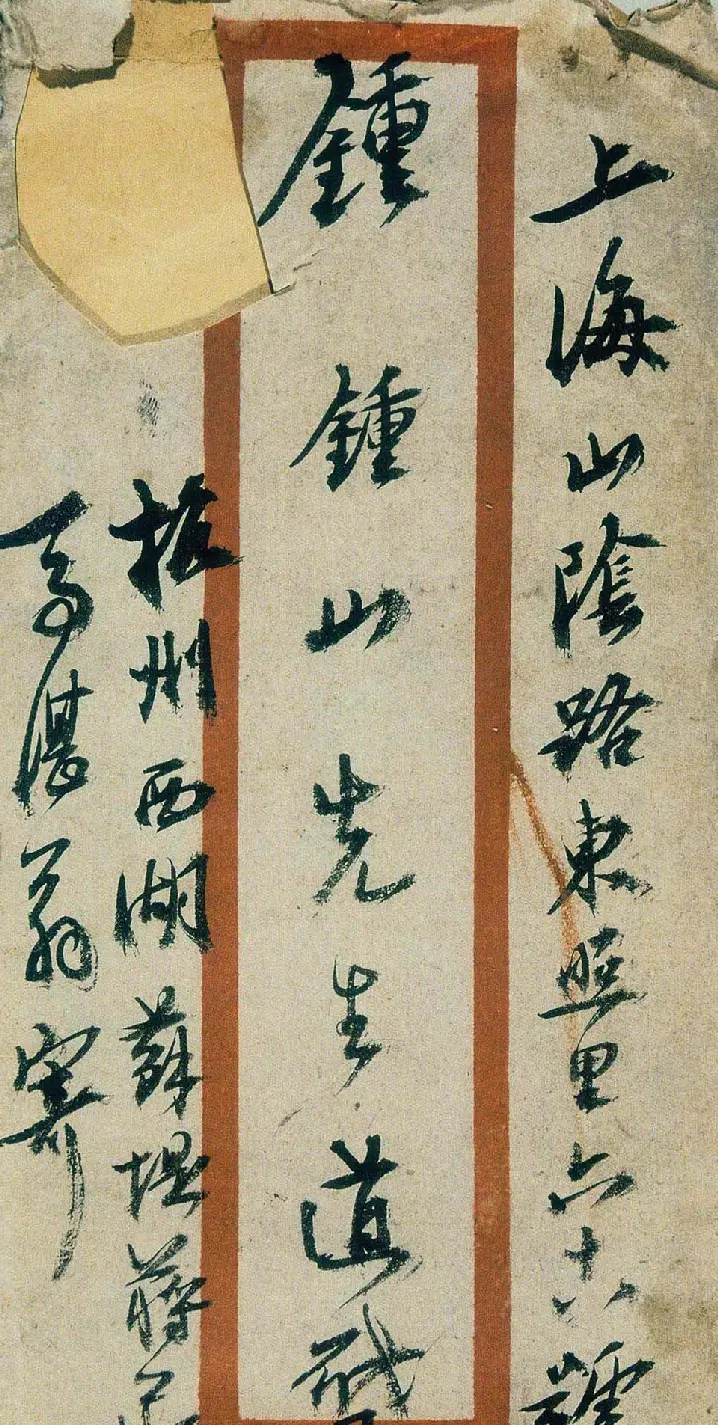 上海山陰路東照里六十八號
鍾鍾山先生道啟
杭州西湖蘇堤蔣莊
馬湛翁寄